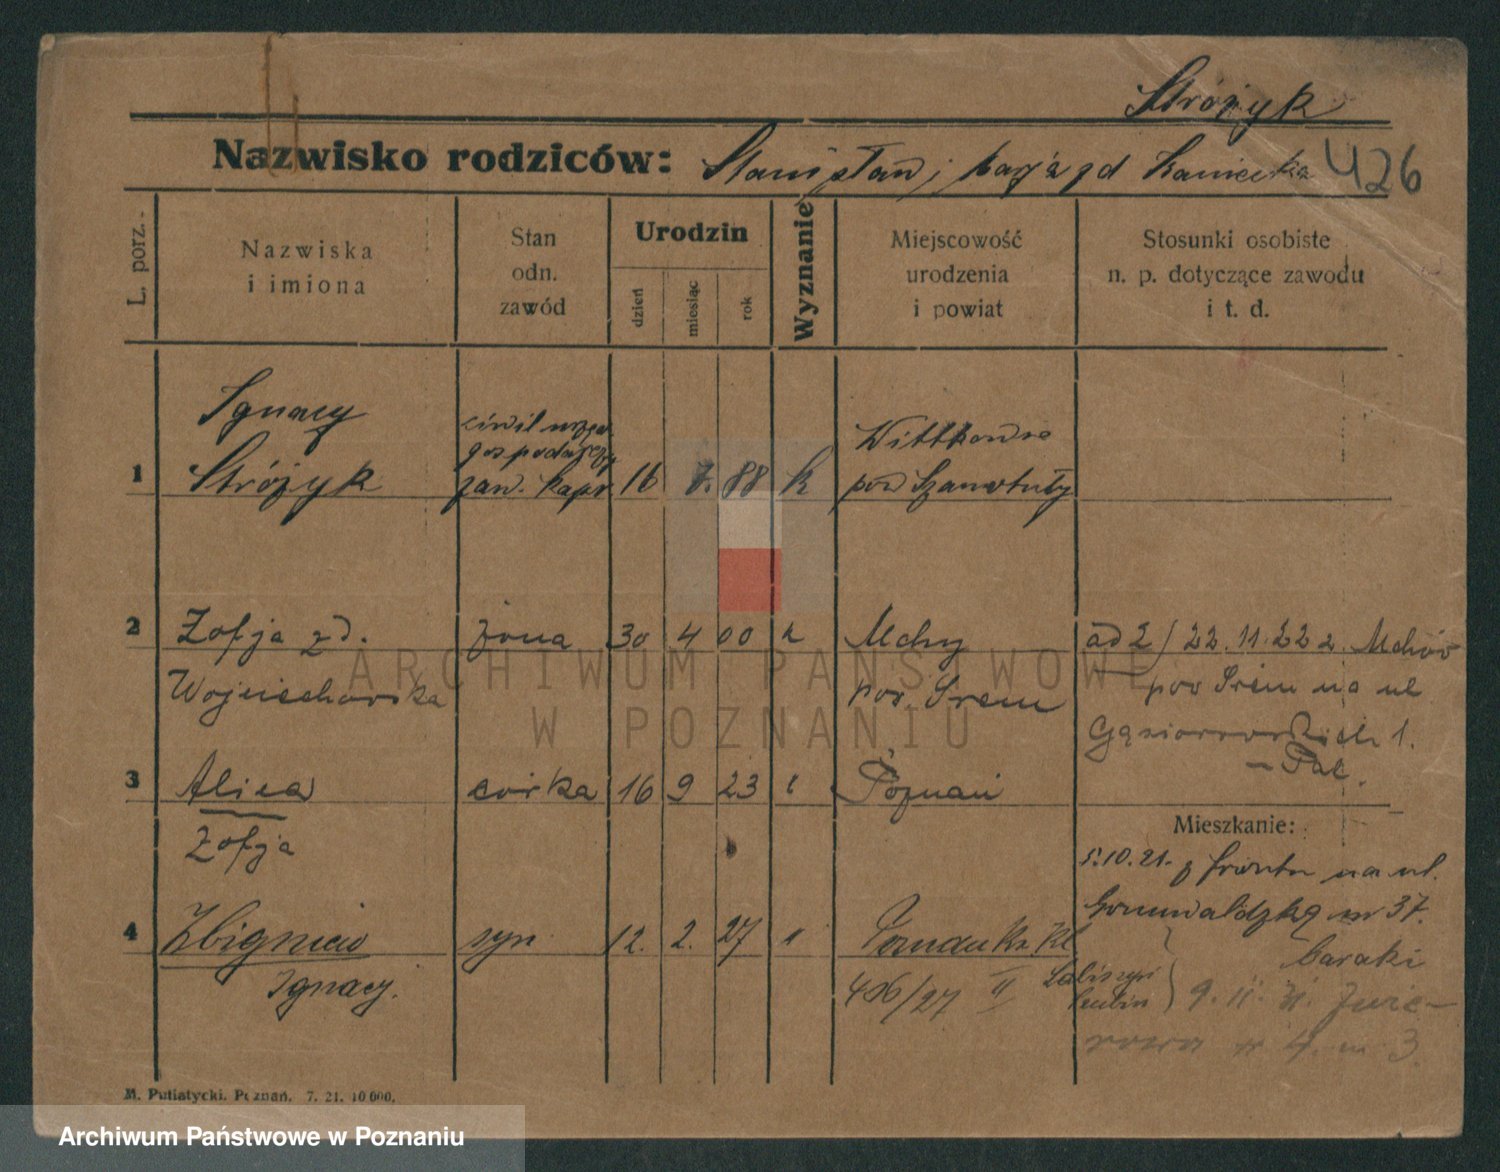 Stróżyk
Nazwisko rodziców: Stanisław i Marja zd Kaniecka 426
L. porz.
Nazwiska
i imiona
Stan
odn.
zawód
Urodzin
dzień
miesiąc
rok
Wyznanie
Miejscowość
urodzenia
i powiat
Stosunki osobiste
n. p. dotyczące zawodu
i t. d.
Ignacy
ciwil
1 Stróżyk zaw. kapr. 16 7. 88 k
pow Szamotuły
2 Zofja zd. żona 30 4 00 k Mchy
Wojciechowska pow. Śrem
ad 2/ 22.11.22 z Mchów
pow Śrem na ul
Gąsiorowskich 1.
3 Alica córka 16 9 23 Poznań
Zofja
Mieszkanie:
5.10.21. z frontu na ul.
Grunwaldzką nr 37.
baraki
4 Zbigniew syn 12. 2. 27 "
Ignacy.
406/27 II
9. II. 31.
nr 4. m 3.
M. Putiatycki. Poznań. 7. 21. 10000.
ARCHIWUM PAŃSTWOWE
W POZNANIU
Archiwum Państwowe w Poznaniu